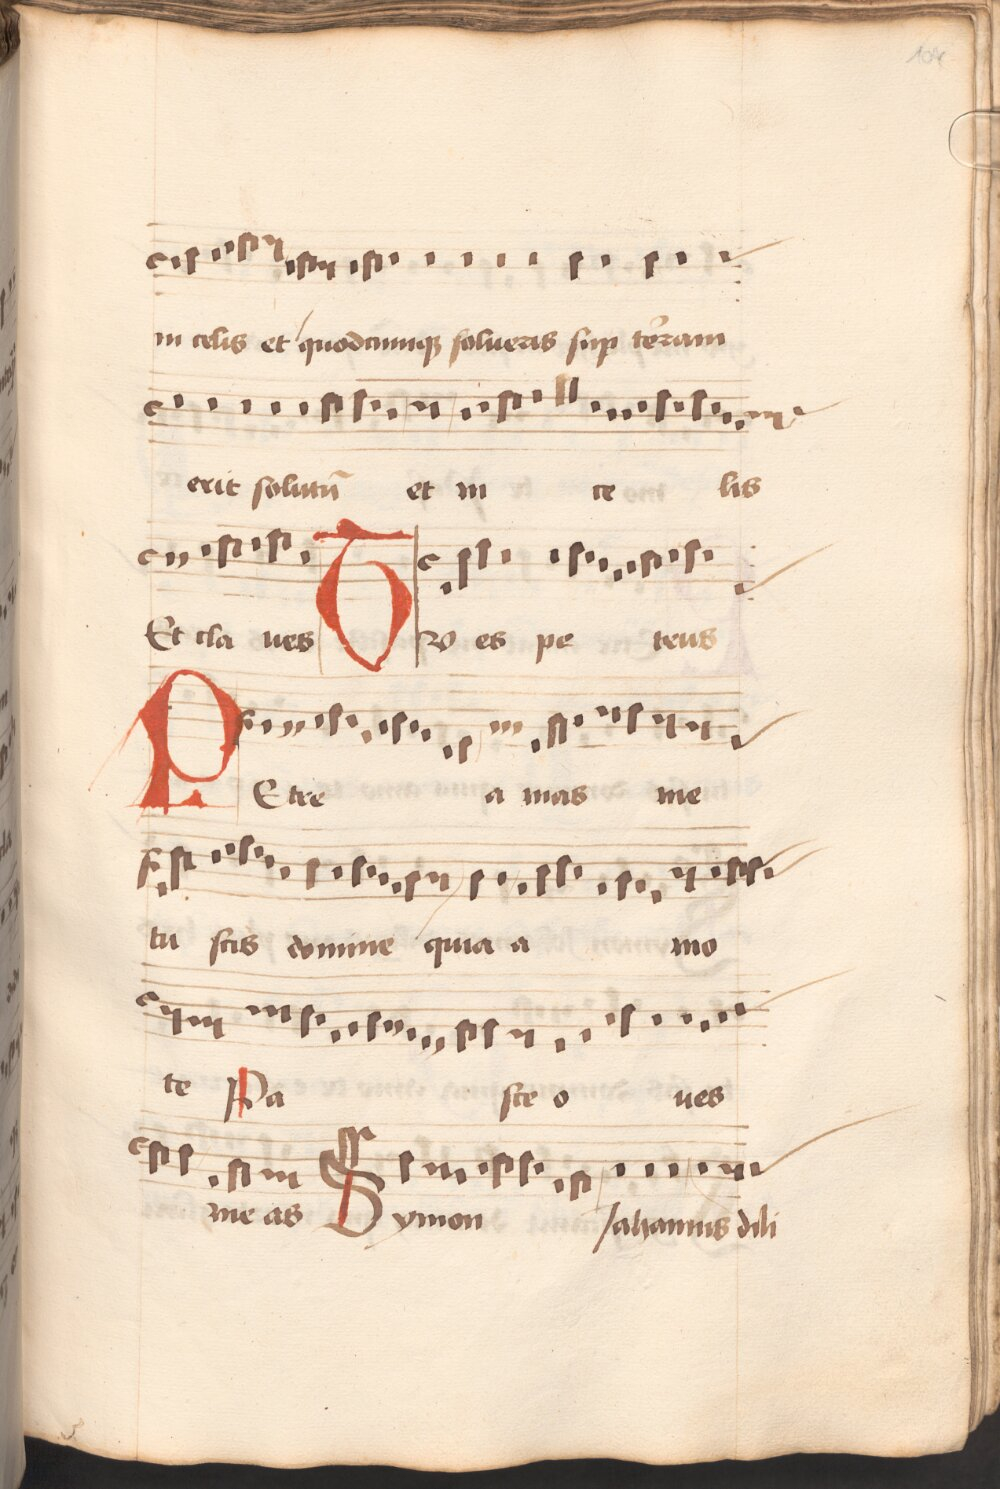 104
in celis et quodcumq solueris sup terram
erit solutū et in ce lis
Et cla ues T v es pe trus
P Etre a mas me
tu scis domine quia a mo
te Pa sce o ues
me as Symon Iohannis dili